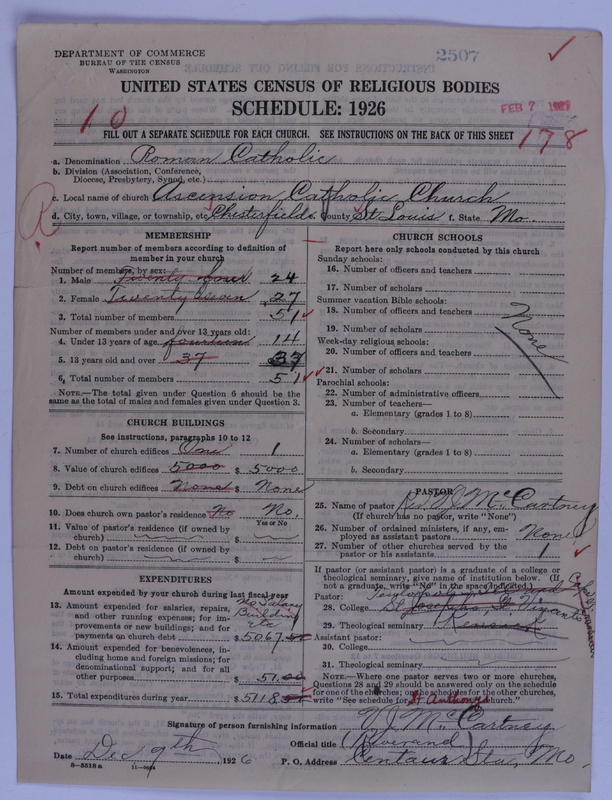 DEPARTMENT OF COMMERCE
BUREAU OF THE CENSUS
WASHINGTON
2507
UNITED STATES CENSUS OF RELIGIOUS BODIES
SCHEDULE: 1926
FEB 7 1927
10
178
FILL OUT A SEPARATE SCHEDULE FOR EACH CHURCH. SEE INSTRUCTIONS ON THE BACK OF THIS SHEET
a. Denomination Roman Catholic
b. Division (Association, Conference,
Diocese, Presbytery, Synod, etc.)
c. Local name of church Ascension Catholic Church
d. City, town, village, or township, etc. Chesterfield e. County St. Louis f. State Mo.
R
MEMBERSHIP
Report number of members according to definition of
member in your church
Number of members, by sex:
1. Male Twenty four 24
2. Female Twenty seven 27
3. Total number of members 51
Number of members under and over 13 years old:
4. Under 13 years of age fourteen 14
5. 13 years old and over 37 37
6. Total number of members 51
NOTE.—The total given under Question 6 should be
the same as the total of males and females given under Question 3.
CHURCH BUILDINGS
See instructions, paragraphs 10 to 12
7. Number of church edifices One 1
8. Value of church edifices 5000 $ 5000
9. Debt on church edifices None $ None
10. Does church own pastor's residence No No.
Yes or No
11. Value of pastor's residence (if owned by
church) $
12. Debt on pastor's residence (if owned by
church) $
EXPENDITURES
Amount expended by your church during last fiscal year
13. Amount expended for salaries, repairs,
and other running expenses; for im-
provements or new buildings; and for
payments on church debt $ 5067.
No Salary
Building
etc
14. Amount expended for benevolences, in-
cluding home and foreign missions; for
denominational support; and for all
other purposes $ 51.00
15. Total expenditures during year $ 5118.
CHURCH SCHOOLS
Report here only schools conducted by this church
Sunday schools:
16. Number of officers and teachers
17. Number of scholars
Summer vacation Bible schools:
18. Number of officers and teachers
19. Number of scholars
None
Week-day religious schools:
20. Number of officers and teachers
21. Number of scholars
Parochial schools:
22. Number of administrative officers
23. Number of teachers—
a. Elementary (grades 1 to 8)
b. Secondary
24. Number of scholars—
a. Elementary (grades 1 to 8)
b. Secondary
PASTOR
25. Name of pastor McCartney
(If church has no pastor, write "None")
26. Number of ordained ministers, if any, em-
ployed as assistant pastors None
27. Number of other churches served by the
pastor or his assistants 1
If pastor (or assistant pastor) is a graduate of a college or
theological seminary, give name of institution below. (If
not a graduate, write "No" in the space indicated.)
Pastor:
28. College St Josephs, St Vincents
29. Theological seminary Kenrick
Assistant pastor:
30. College
31. Theological seminary
NOTE.—Where one pastor serves two or more churches,
Questions 28 and 29 should be answered only on the schedule
for one of the churches; on the schedules for the other churches,
write "See schedule for St Anthonys church."
Signature of person furnishing information V. J. McCartney
Official title (Reverand)
Date Dec 9th, 1926 P. O. Address Centaur Sta, Mo.
8—5518 a